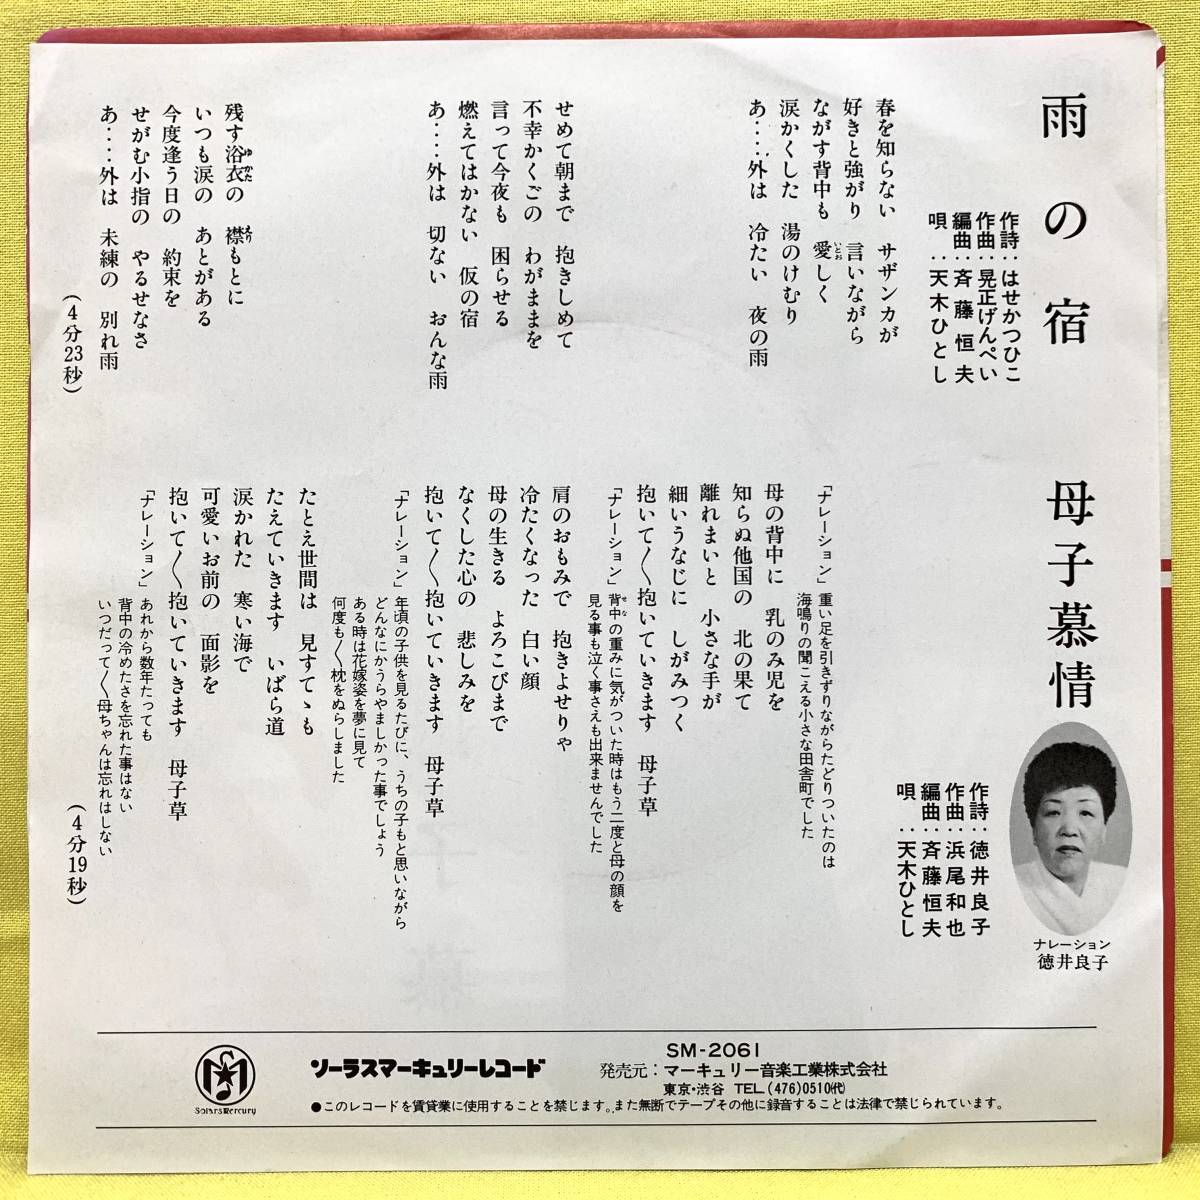 雨の宿
作詩：はせかつひこ
作曲：晃正げんぺい
編曲：斉藤恒夫
唄：天木ひとし
春を知らない　サザンカが
好きと強がり　言いながら
ながす背中も　愛しく
いとお
涙かくした　湯のけむり
あ‥‥外は　冷たい　夜の雨
せめて朝まで　抱きしめて
不幸かくごの　わがままを
言って今夜も　困らせる
燃えてはかない　仮の宿
あ‥‥外は　切ない　おんな雨
残す浴衣の　襟もとに
ゆかた　えり
いつも涙の　あとがある
今度逢う日の　約束を
せがむ小指の　やるせなさ
あ‥‥外は　未練の　別れ雨
(4分23秒)
母子慕情
作詩：徳井良子
作曲：浜尾和也
編曲：斉藤恒夫
唄：天木ひとし
ナレーション
徳井良子
「ナレーション」重い足を引きずりながらたどりついたのは
海鳴りの聞こえる小さな田舎町でした
母の背中に　乳のみ児を
知らぬ他国の　北の果て
離れまいと　小さな手が
細いうなじに　しがみつく
抱いて〱抱いていきます　母子草
「ナレーション」背中の重みに気がついた時はもう二度と母の顔を
せな
見る事も泣く事さえも出来ませんでした
肩のおもみで　抱きよせりゃ
冷たくなった　白い顔
母の生きる　よろこびまで
なくした心の　悲しみを
抱いて〱抱いていきます　母子草
「ナレーション」年頃の子供を見るたびに、うちの子もと思いながら
どんなにかうらやましかった事でしょう
ある時は花嫁姿を夢に見て
何度も〱枕をぬらしました
たとえ世間は　見すてゝも
たえていきます　いばら道
涙かれた　寒い海で
可愛いお前の　面影を
抱いて〱抱いていきます　母子草
「ナレーション」あれから数年たっても
背中の冷めたさを忘れた事はない
いつだって〱母ちゃんは忘れはしない
(4分19秒)
Solars Mercury
ソーラスマーキュリーレコード
SM-2061
発売元：マーキュリー音楽工業株式会社
東京・渋谷 TEL(476)0510(代)
●このレコードを賃貸業に使用することを禁じます。また無断でテープその他に録音することは法律で禁じられています。